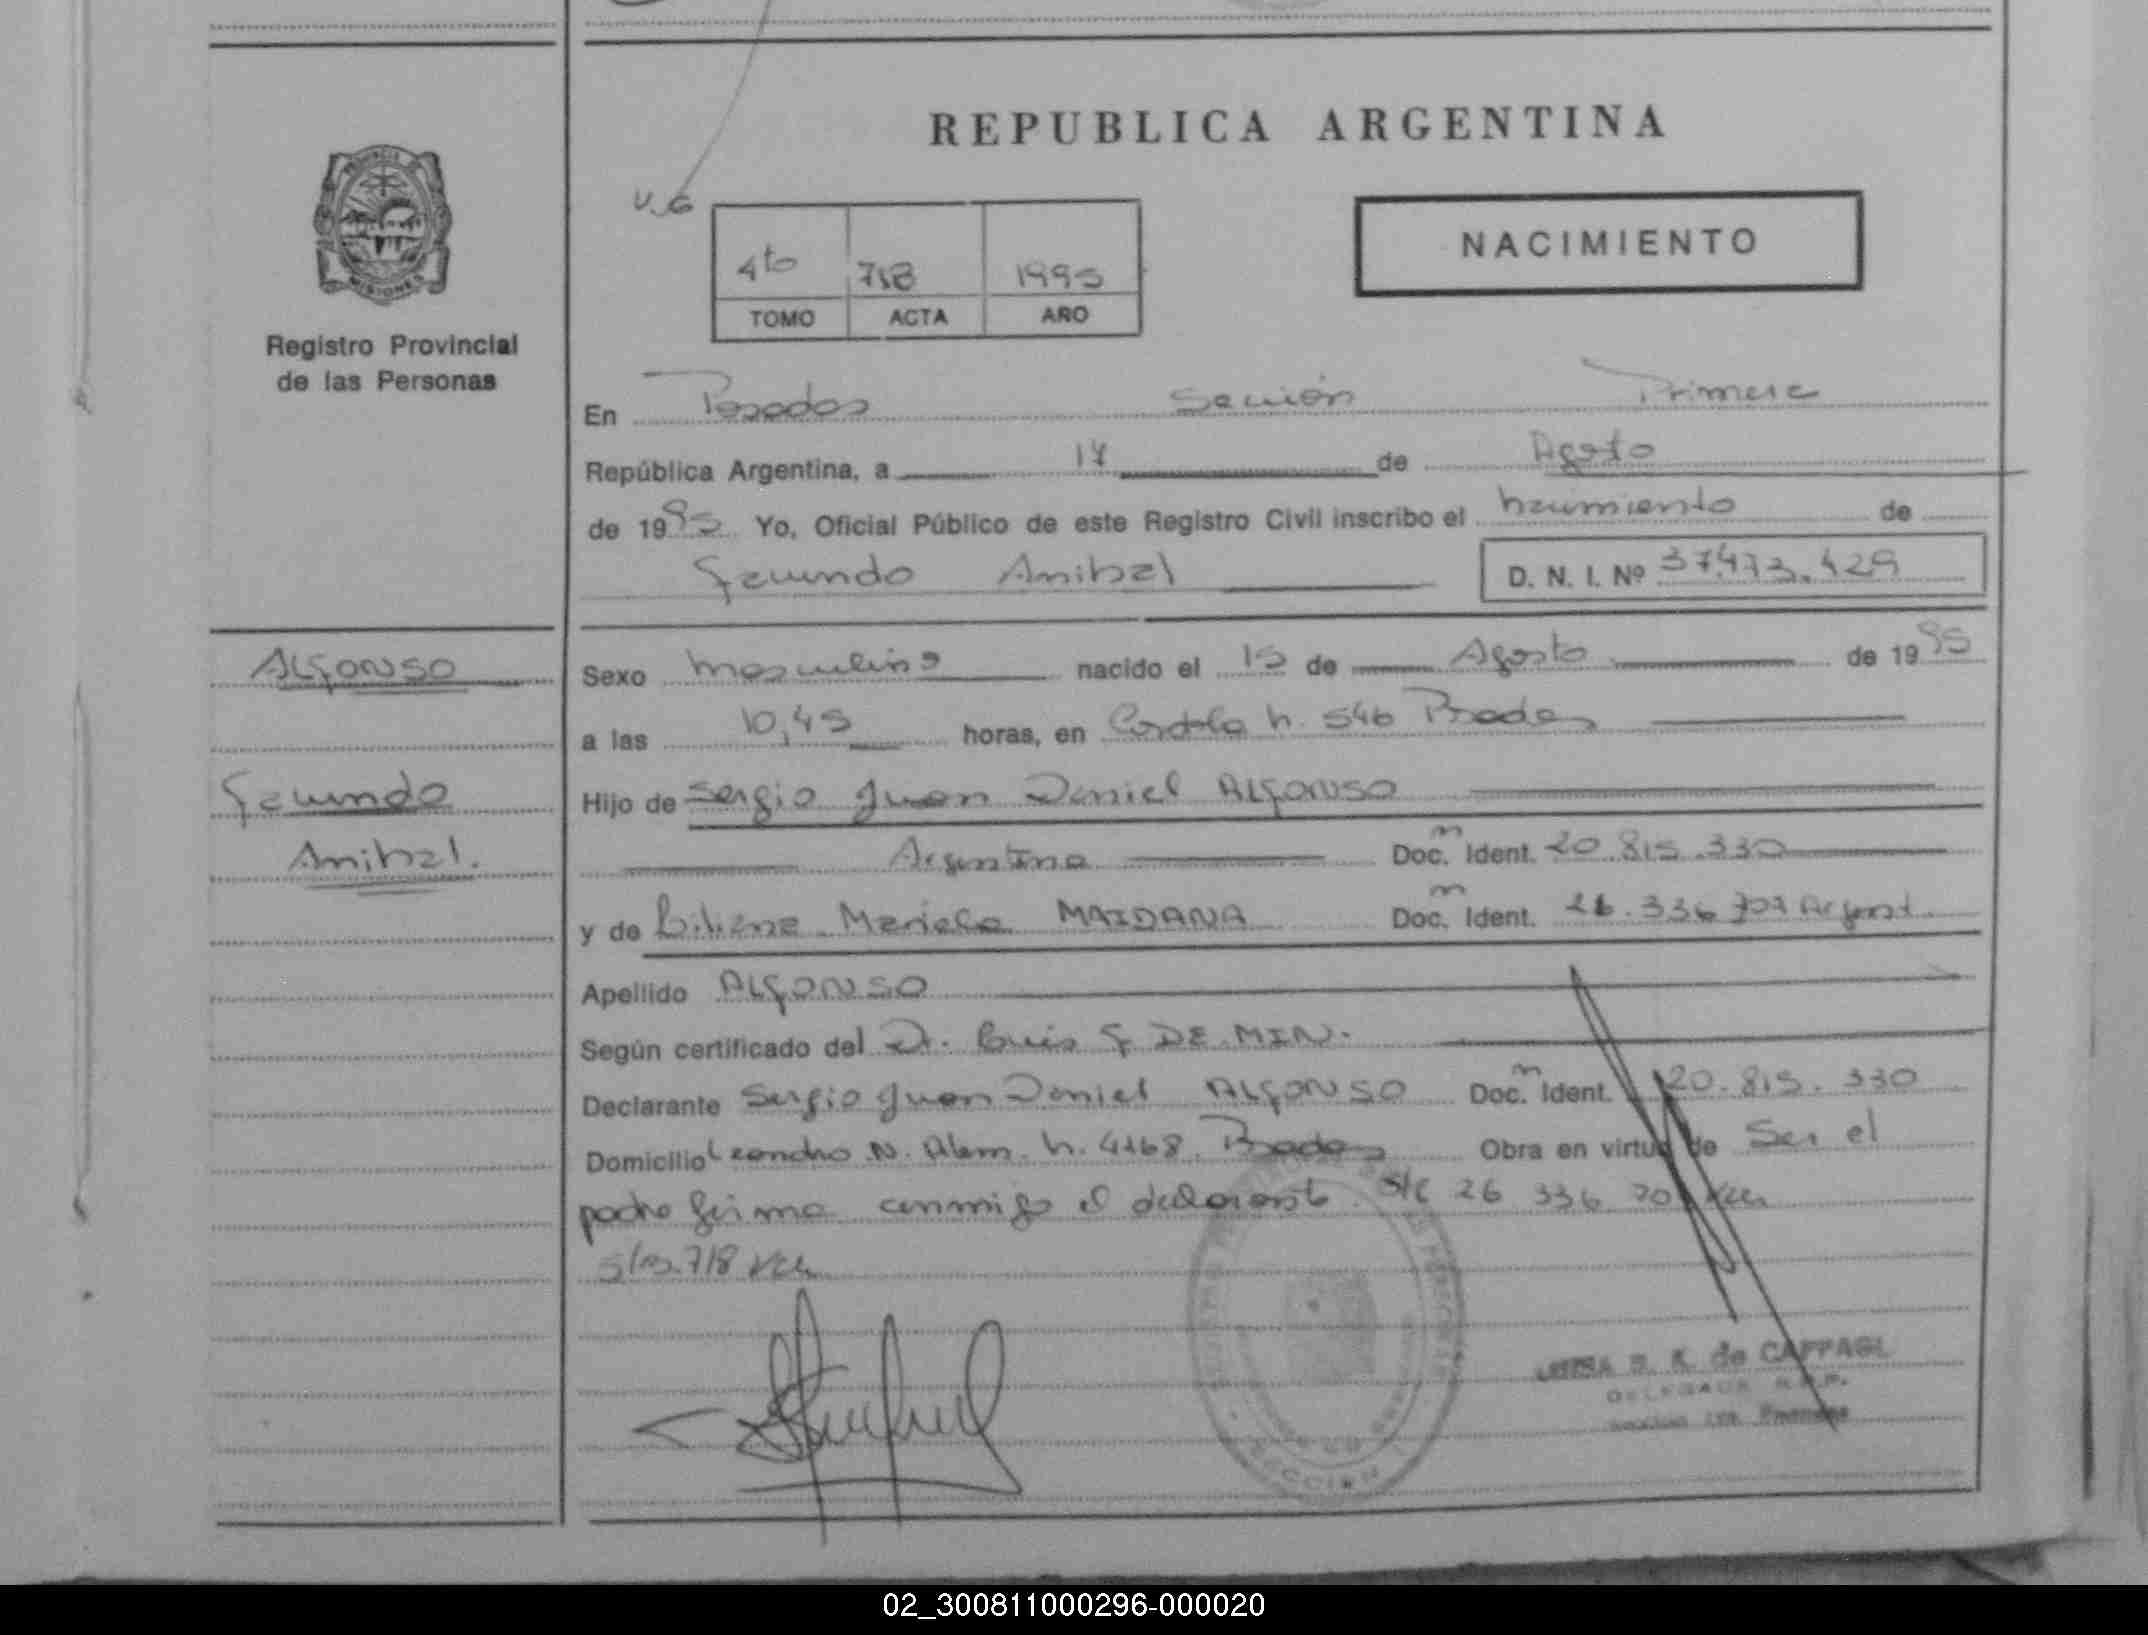 REPUBLICA ARGENTINA
V. G
NACIMIENTO
4to 718 1995
TOMO ACTA AÑO
PROVINCIA DE MISIONES
Registro Provincial
de las Personas
En Posadas Sección Primera
República Argentina, a 17 de Agosto
de 1995 Yo, Oficial Público de este Registro Civil inscribo el nacimiento de
Facundo Anibal D. N. I. Nº 37.473.429
ALFONSO
Facundo
Anibal.
Sexo masculino nacido el 15 de Agosto de 1995
a las 10,45 horas, en Cordoba n. 546 Posadas
Hijo de Sergio Juan Daniel ALFONSO
Argentino Doc. n Ident. 20.815.330
y de Liliana Mariela MAIDANA Doc. n Ident. 26.336.707 Argent.
Apellido ALFONSO
Según certificado del Dr. Luis F DE MIN.
Declarante Sergio Juan Daniel ALFONSO Doc. n Ident. 20.815.330
Domicilio Leandro N. Alem. n. 4168. Posadas Obra en virtud de Ser el
padre firma conmigo el declarante. S/c 26 336 70 Vale
s/b.718 Vale
de CAFFAGI
DELEGADA R.P.P.
02_300811000296-000020